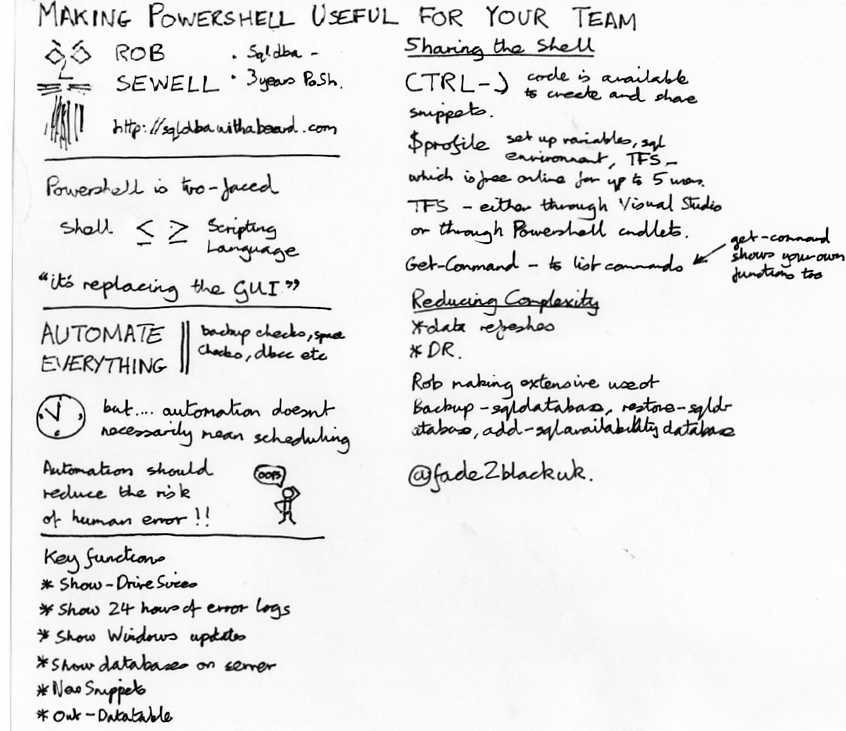 MAKING POWERSHELL USEFUL FOR YOUR TEAM
ROB
SEWELL
• Sqldba -
• 3 years PoSh.
http://sqldbawithabeard.com
Powershell is two-faced
Shell < : > Scripting
Language
"it's replacing the GUI"
AUTOMATE
EVERYTHING
backup checks, space
checks, dbcc etc
but.... automation doesnt
necessarily mean scheduling
Automation should
reduce the risk
of human error!!
OOPS
Key functions
* Show-DriveSizes
* Show 24 hours of error logs
* Show Windows updates
* Show databases on server
* New Snippets
* Out-Datatable
Sharing the Shell
CTRL-J code is available
to create and share
snippets.
$profile set up variables, sql
environment, TFS -
which is free online for up to 5 users.
TFS - either through Visual Studio
or through Powershell cmdlets.
Get-Command - to list commands
get-command
shows your own
functions too
Reducing Complexity
* data refreshes
* DR.
Rob making extensive use of
Backup-sqldatabase, restore-sqld
atabase, add-sqlavailability database
@fade2blackuk.